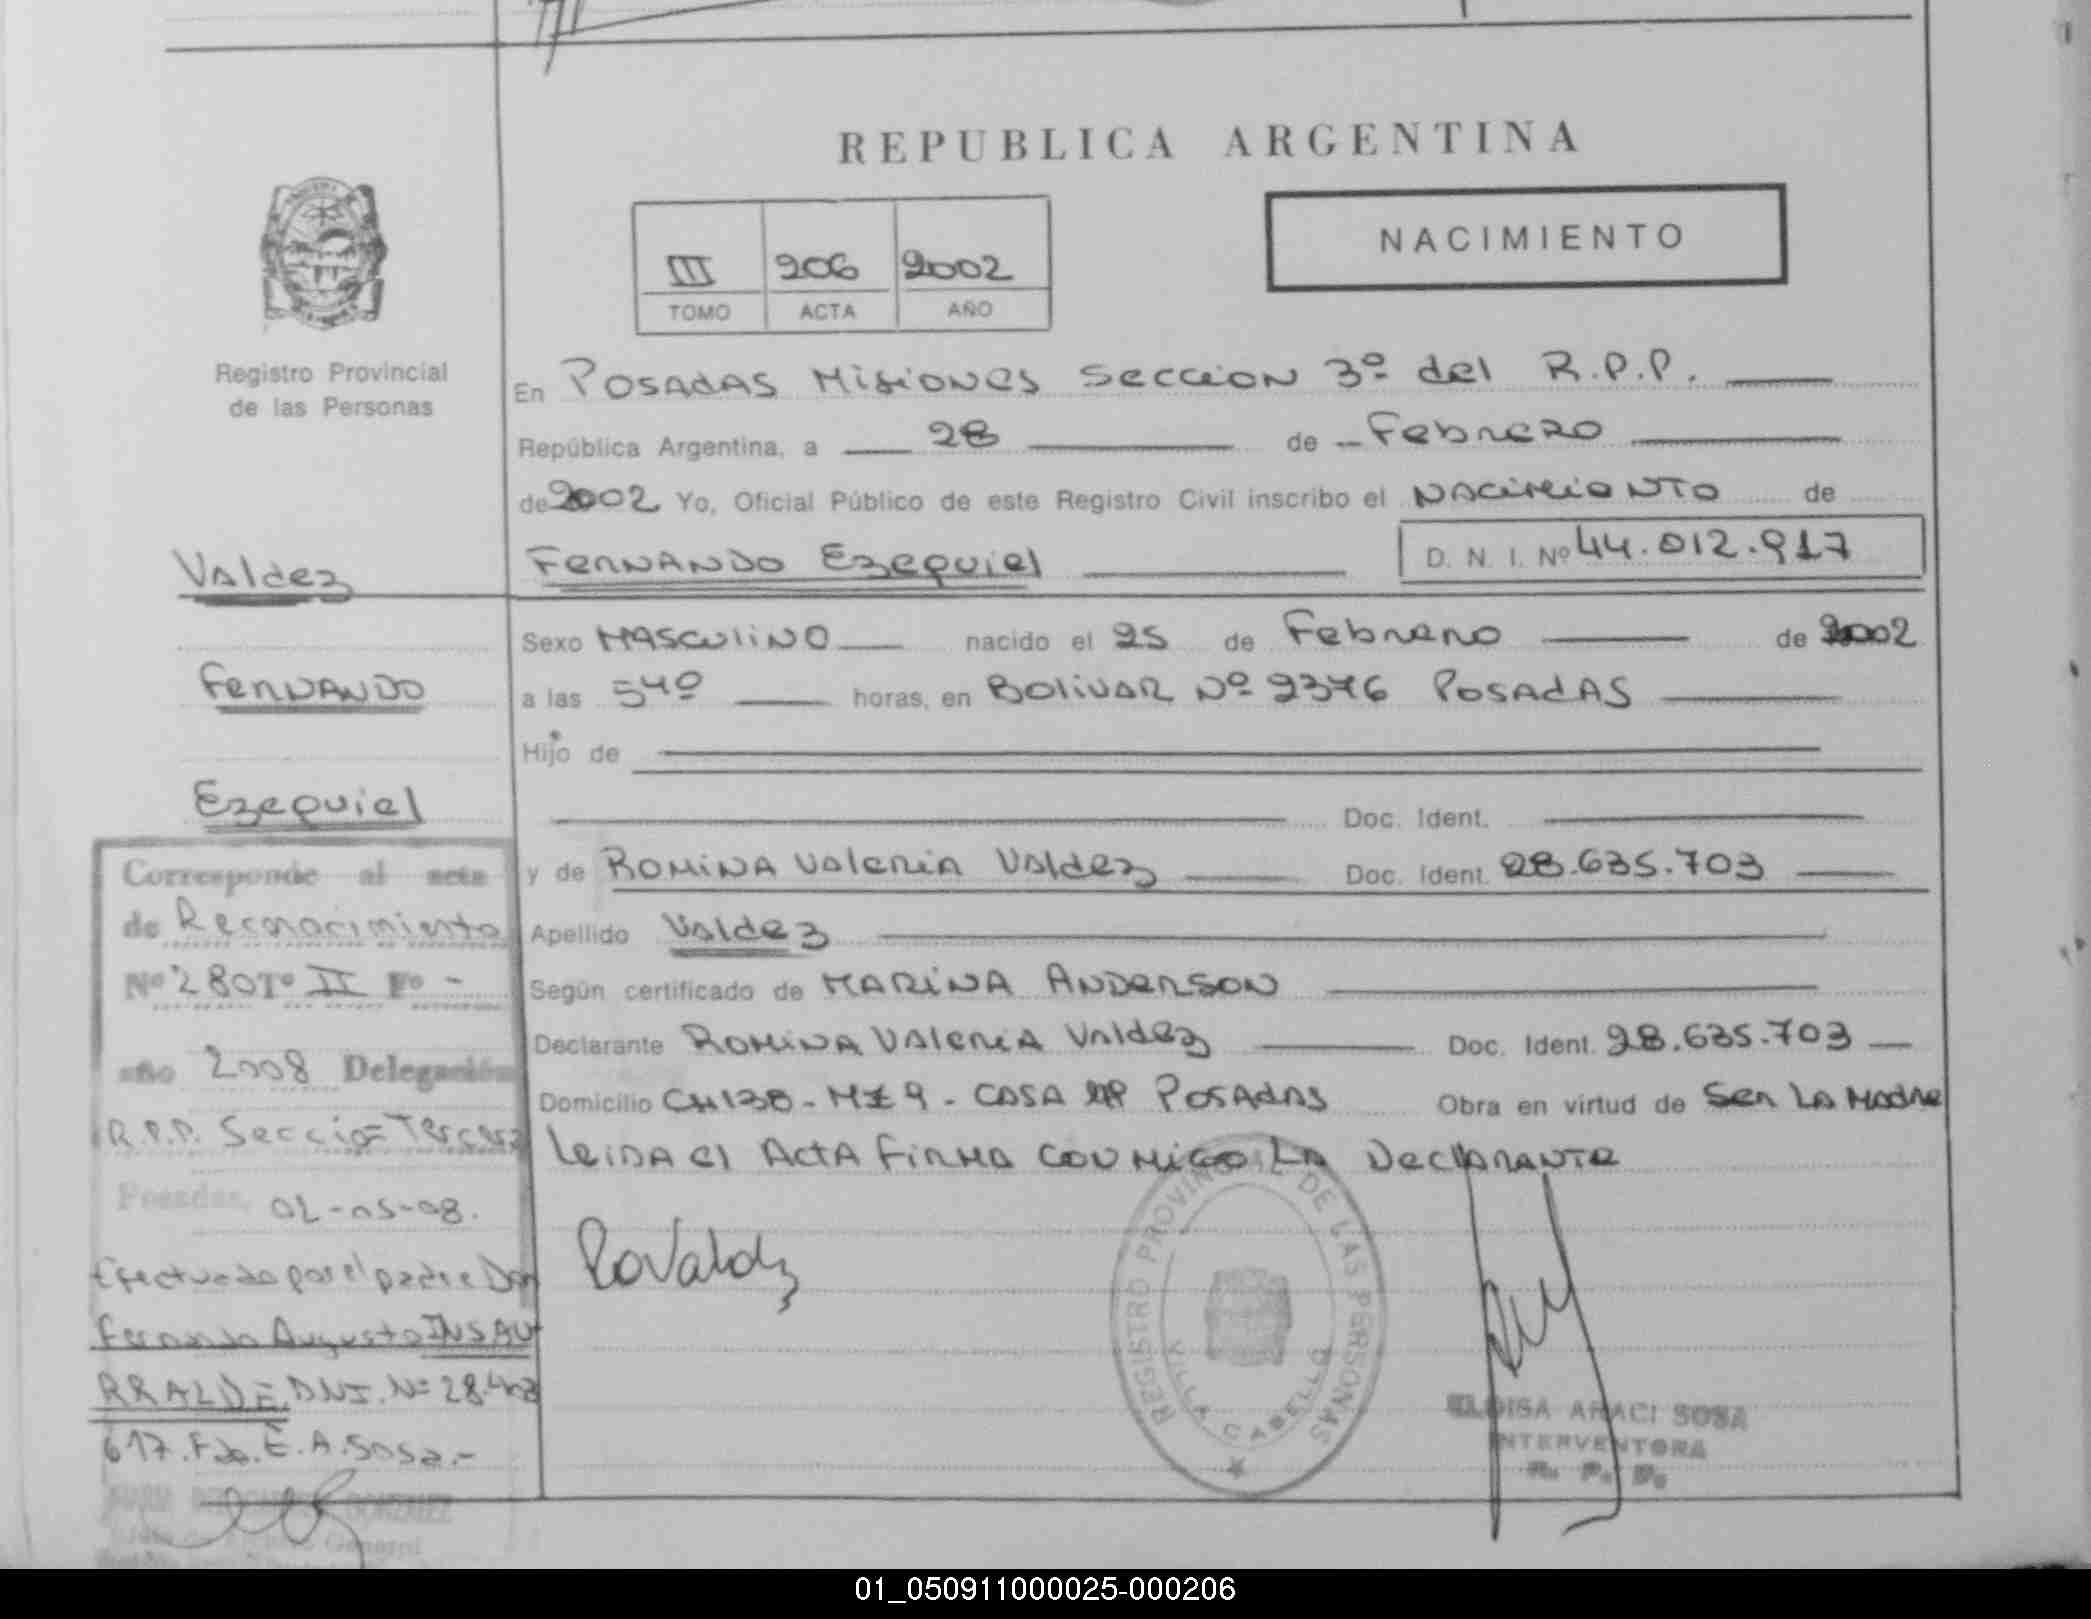 REPUBLICA ARGENTINA
NACIMIENTO
III 206 2002
TOMO ACTA AÑO
Registro Provincial
de las Personas
En POSADAS MISIONES SECCION 3º del R.P.P.
República Argentina, a 28 de Febrero
de 2002 Yo, Oficial Público de este Registro Civil inscribo el NACIMIENTO de
FERNANDO Ezequiel D. N. I. Nº 44.012.917
Valdez
FERNANDO
Ezequiel
Sexo MASCULINO nacido el 25 de Febrero de 2002
a las 540 horas, en BOLIVAR Nº 2376 POSADAS
Hijo de
Doc. Ident.
y de ROMINA VALERIA Valdez Doc. Ident. 28.635.703
Apellido Valdez
Según certificado de MARINA ANDERSON
Declarante ROMINA VALERIA Valdez Doc. Ident. 28.635.703
Domicilio CH 138 - MZ 9 - CASA POSADAS Obra en virtud de Ser LA MADRE
LEIDA el ACTA FIRMA CONMIGO LA DECLARANTE
Corresponde al acta
de Reconocimiento
Nº 280 Tº II Fº -
año 2008 Delegación
R.P.P. Sección Tercera
Posadas, 02-05-08.
Efectuado por el padre Don
Fernando Augusto INSAU
RRALDE, DNI. Nº 28.403
617. Fdo. E. A. Sosa.-
RoValdz
REGISTRO PROVINCIAL DE LAS PERSONAS
VILLA CABELLO
ELOISA ARACI SOSA
INTERVENTORA
R. P. P.
01_050911000025-000206